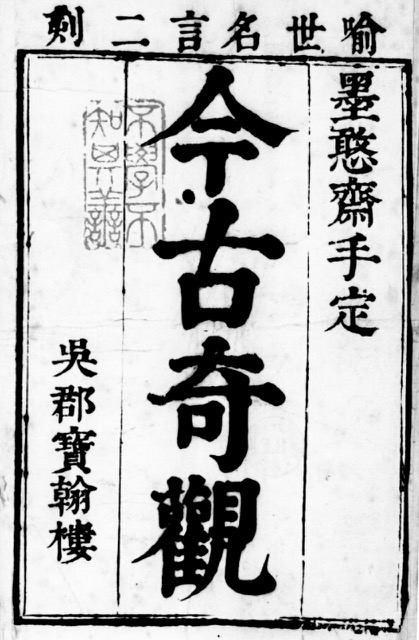 喻世名言二刻
墨憨齋手定
今古奇觀
吳郡寶翰樓
學不
知其善